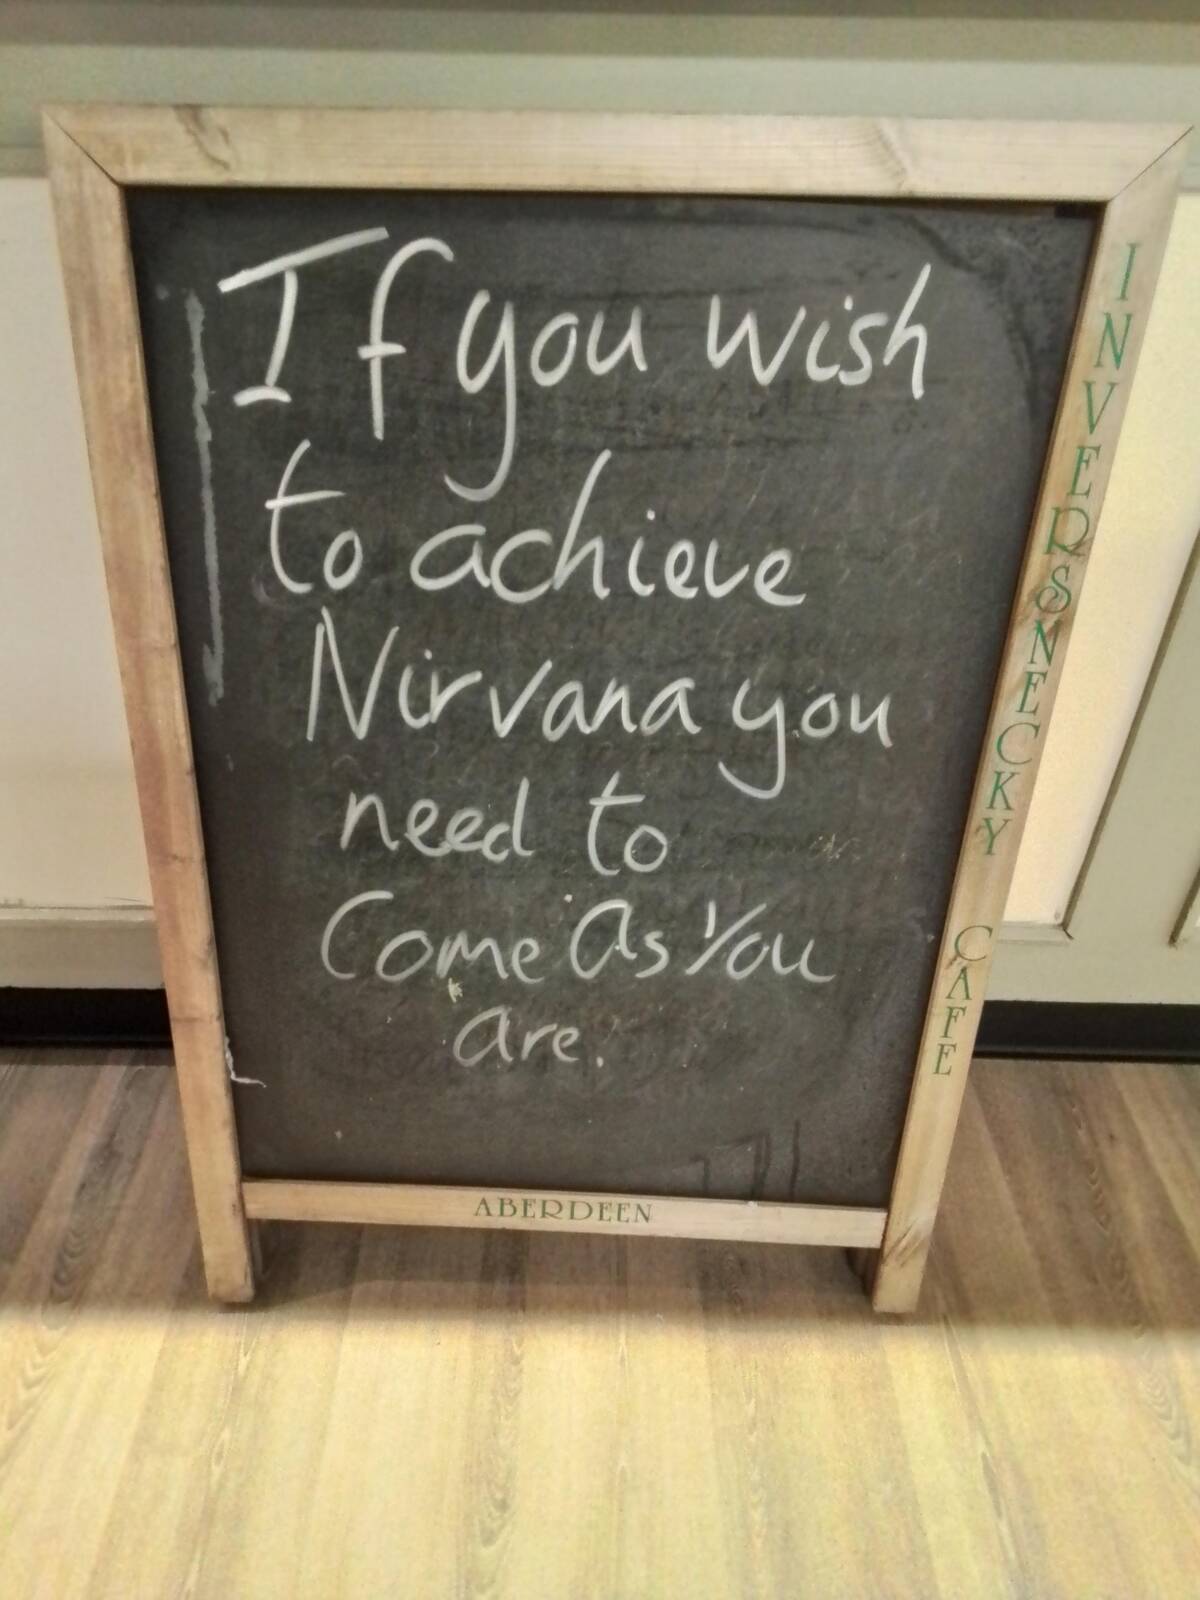 If you wish
to achieve
Nirvana you
need to
Come As You
are.
INVERSNECKY CAFE
ABERDEEN